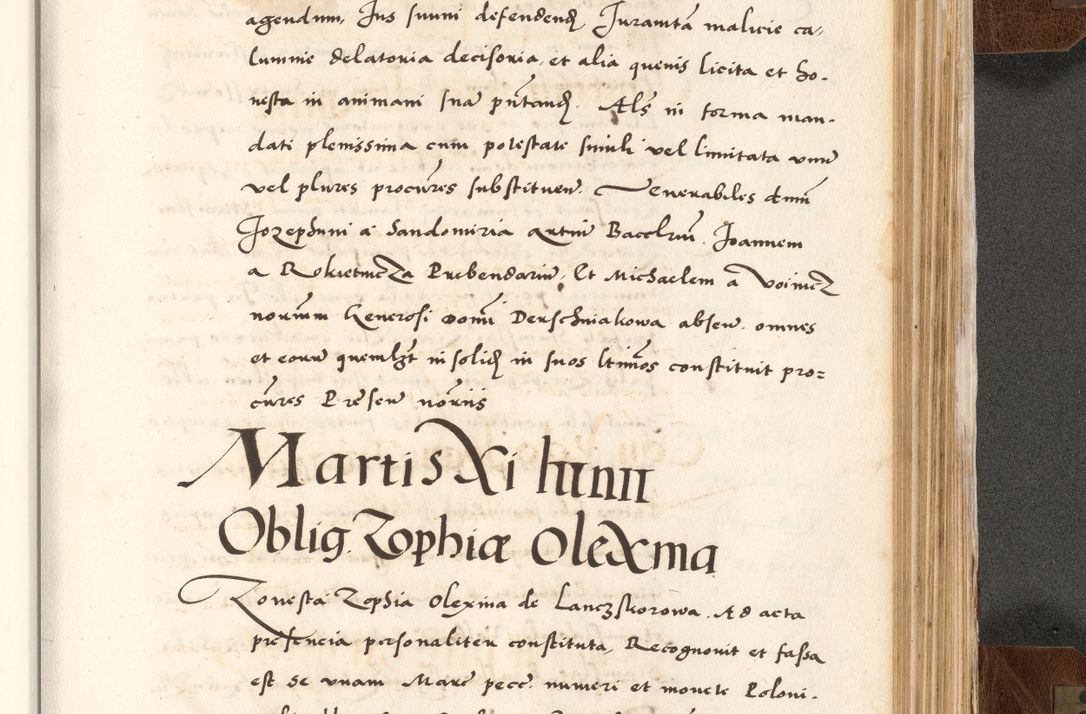 agendum, Jus suum defendend, Juramtã malicie ca-
lumnie delatoria decisoria, et alia quevis licita et ho-
nesta in animam sua pñtand. Als in forma man-
dati plenissima cum potestate simili vel limitata unu
vel plures procũres substituen. Venerabiles dnũ
Jozephum a Sandomiria artiũ Baccelriũ, Joannem
a Rokietnicza Prebendariũ, Et Michaelem a Voinicz
noriũm Generosi Domĩ Derschniakowa absen. omnes
et eorũ quemlzt in solid in suos ltimos constituit pro=
cũres Presen nõriis
Martis Xi Iunii
Oblig. Zophiæ Olexina
Honesta Zophia Olexina de Lanczskorowa. Ad acta
presencia personaliter constituta, Recognovit et fassa
est se unam Marc pecc numeri et monete Poloni-